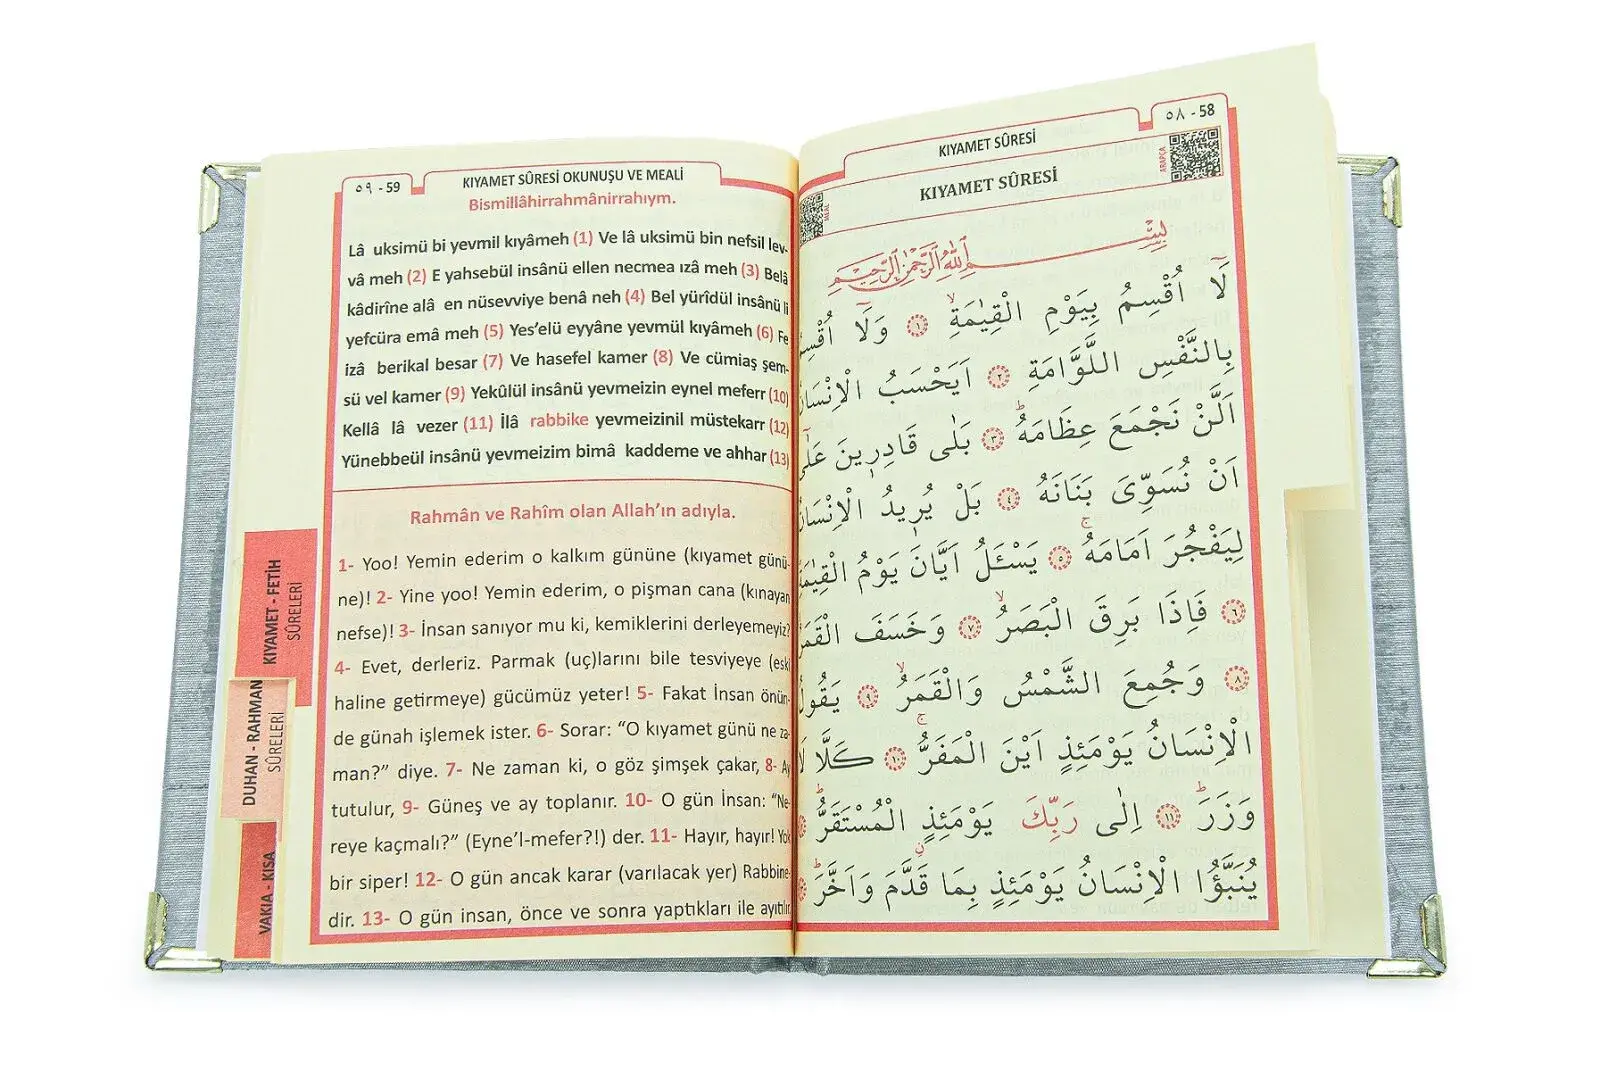 ٥٨ - 58
KIYAMET SÛRESİ
ARAPÇA
KIYAMET SÛRESİ
MEAL
بِسْمِ اللّٰهِ الرَّحْمٰنِ الرَّحٖيمِ
لَٓا اُقْسِمُ بِيَوْمِ الْقِيٰمَةِۙ ﴿١﴾ وَلَٓا اُقْسِمُ
بِالنَّفْسِ اللَّوَّامَةِ ﴿٢﴾ اَيَحْسَبُ الْاِنْسَانُ
اَلَّنْ نَجْمَعَ عِظَامَهُؕ ﴿٣﴾ بَلٰى قَادِرٖينَ عَلٰٓى
اَنْ نُسَوِّيَ بَنَانَهُ ﴿٤﴾ بَلْ يُرٖيدُ الْاِنْسَانُ
لِيَفْجُرَ اَمَامَهُۚ ﴿٥﴾ يَسْـَٔلُ اَيَّانَ يَوْمُ الْقِيٰمَةِ
﴿٦﴾ فَاِذَا بَرِقَ الْبَصَرُۙ ﴿٧﴾ وَخَسَفَ الْقَمَرُ
﴿٨﴾ وَجُمِعَ الشَّمْسُ وَالْقَمَرُۙ ﴿٩﴾ يَقُولُ
الْاِنْسَانُ يَوْمَئِذٍ اَيْنَ الْمَفَرُّۚ ﴿١٠﴾ كَلَّا لَا
وَزَرَؕ ﴿١١﴾ اِلٰى رَبِّكَ يَوْمَئِذٍ الْمُسْتَقَرُّؕ
يُنَبَّؤُا الْاِنْسَانُ يَوْمَئِذٍ بِمَا قَدَّمَ وَاَخَّرَؕ
٥٩ - 59
KIYAMET SÛRESİ OKUNUŞU VE MEALİ
Bismillâhirrahmânirrahıym.
Lâ uksimü bi yevmil kıyâmeh (1) Ve lâ uksimü bin nefsil lev-
vâ meh (2) E yahsebül insânü ellen necmea ızâ meh (3) Belâ
kâdirîne alâ en nüsevviye benâ neh (4) Bel yürîdül insânü li
yefcüra emâ meh (5) Yes’elü eyyâne yevmül kıyâmeh (6) Fe
izâ berikal besar (7) Ve hasefel kamer (8) Ve cümiaş şem-
sü vel kamer (9) Yekûlül insânü yevmeizin eynel meferr (10)
Kellâ lâ vezer (11) İlâ rabbike yevmeizinil müstekarr (12)
Yünebbeül insânü yevmeizim bimâ kaddeme ve ahhar (13)
Rahmân ve Rahîm olan Allah’ın adıyla.
1- Yoo! Yemin ederim o kalkım gününe (kıyamet günü-
ne)! 2- Yine yoo! Yemin ederim, o pişman cana (kınayan
nefse)! 3- İnsan sanıyor mu ki, kemiklerini derleyemeyiz?
4- Evet, derleriz. Parmak (uç)larını bile tesviyeye (eski
haline getirmeye) gücümüz yeter! 5- Fakat İnsan önün-
de günah işlemek ister. 6- Sorar: “O kıyamet günü ne za-
man?” diye. 7- Ne zaman ki, o göz şimşek çakar, 8- Ay
tutulur, 9- Güneş ve ay toplanır. 10- O gün İnsan: “Ne-
reye kaçmalı?” (Eyne’l-mefer?!) der. 11- Hayır, hayır! Yok
bir siper! 12- O gün ancak karar (varılacak yer) Rabbine-
dir. 13- O gün insan, önce ve sonra yaptıkları ile ayıtılır.
KIYAMET - FETİH
SÛRELERİ
DUHAN - RAHMAN
SÛRELERİ
VAKIA - KISA